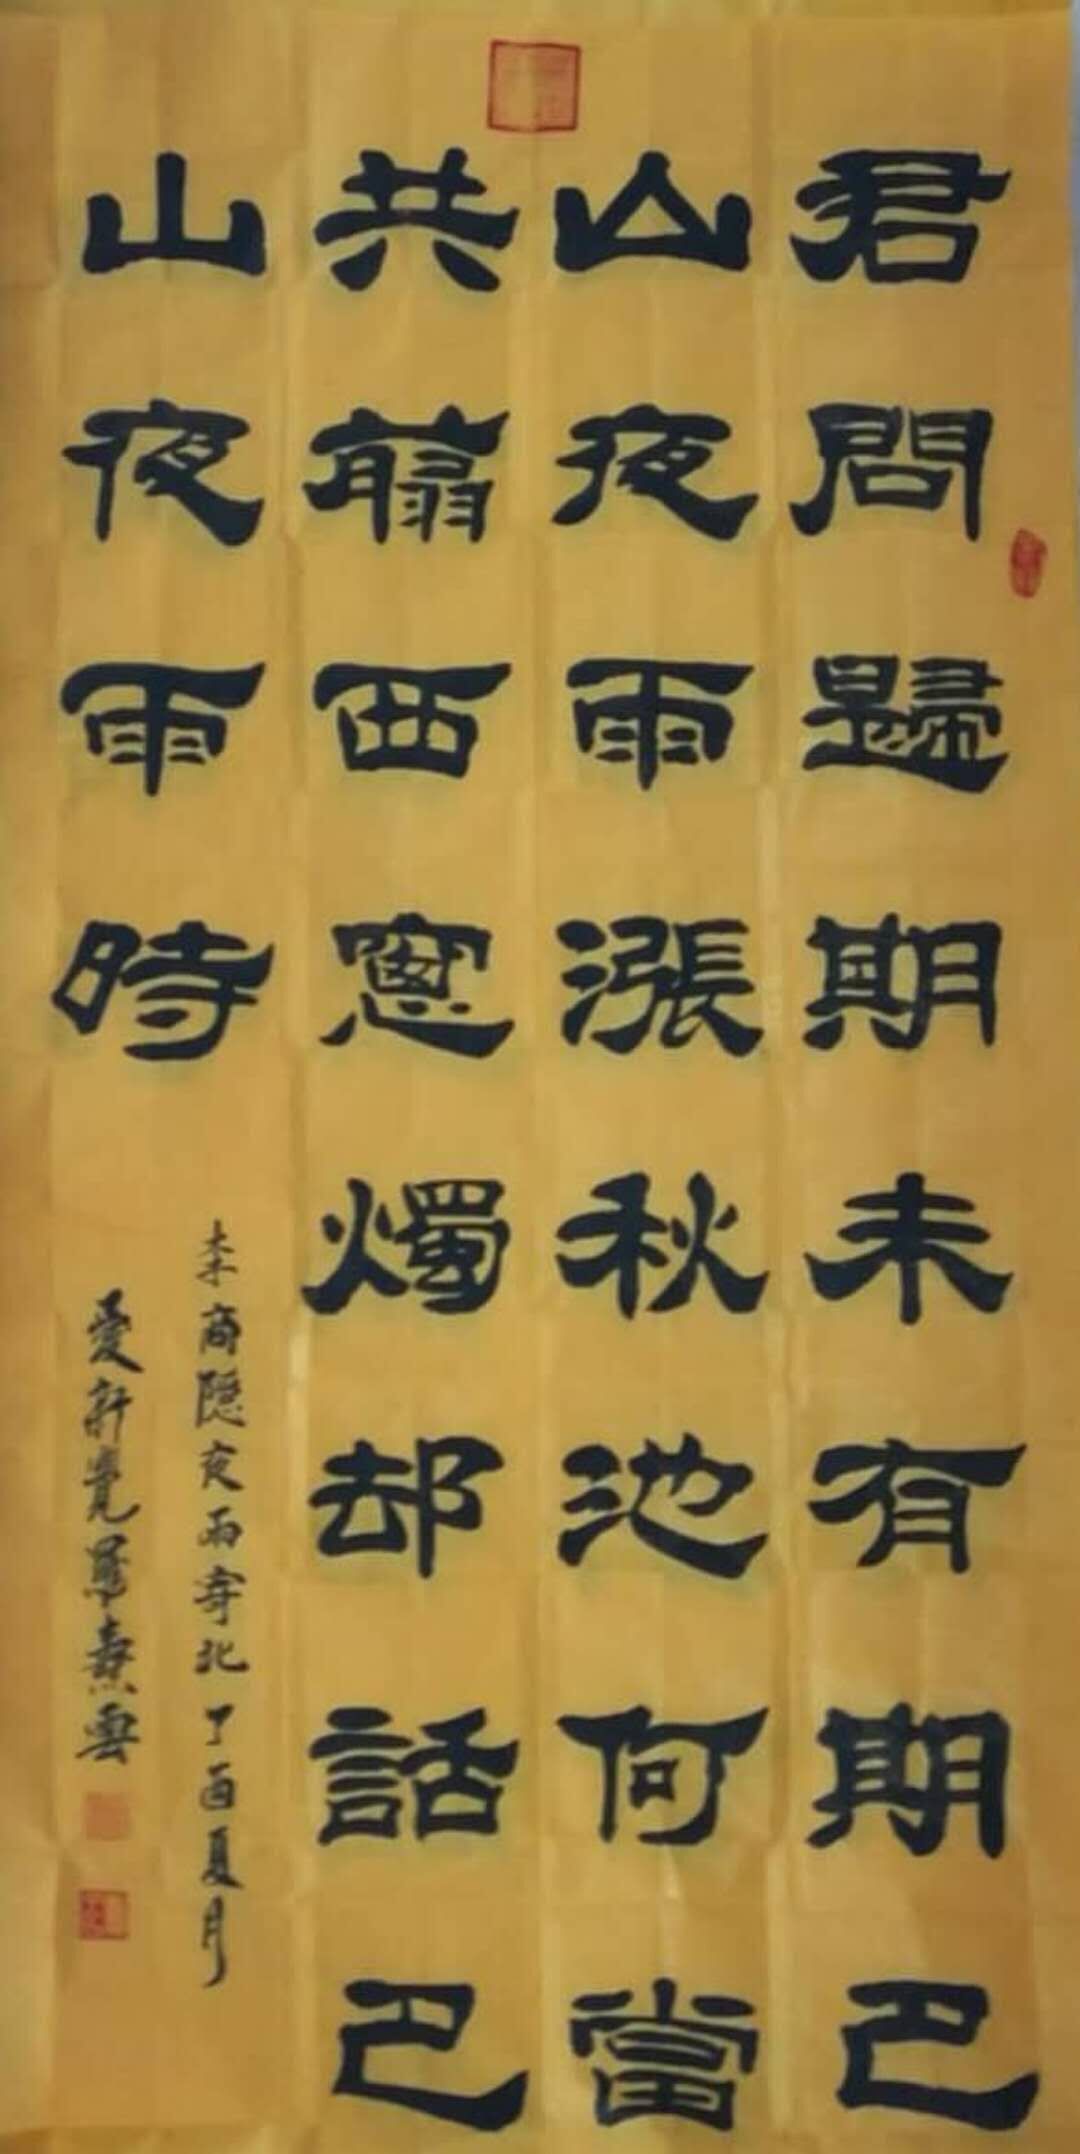 君問歸期未有期巴
山夜雨漲秋池何當
共翦西窻燭却話巴
山夜雨時
李商隐夜雨寄北丁酉夏月
愛新覺羅燾雲